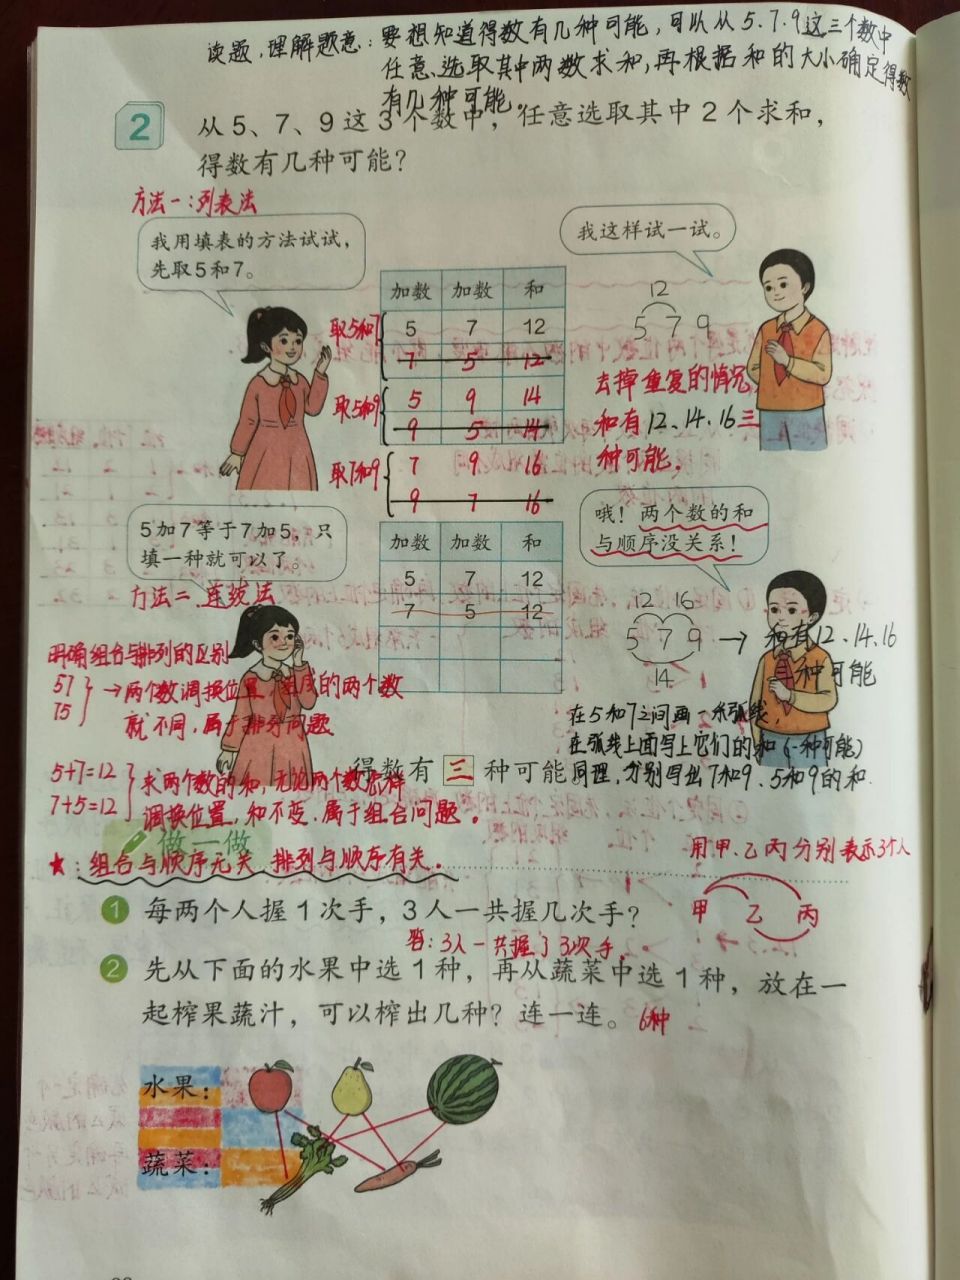 读题，理解题意：要想知道得数有几种可能，可以从5.7.9这三个数中
任意选取其中两数求和，再根据和的大小确定得数
有几种可能。
2 从5、7、9这3个数中，任意选取其中2个求和，
得数有几种可能？
方法一：列表法
我用填表的方法试试，
先取5和7。
我这样试一试。
加数 加数 和
取5和7
5 7 12
7 5 12
取5和9
5 9 14
9 5 14
取7和9
7 9 16
9 7 16
12
5 7 9
去掉重复的情况
和有12、14、16三
种可能。
5加7等于7加5，只
填一种就可以了。
哦！两个数的和
与顺序没关系！
方法二：连线法
加数 加数 和
5 7 12
7 5 12
12 16
5 7 9 → 和有12、14、16
14
三种可能
明确组合与排列的区别
57
75
→两个数调换位置，组成的两个数
就不同，属于排列问题
在5和7之间画一条弧线，
在弧线上面写上它们的和（一种可能）
同理，分别写出7和9、5和9的和.
得数有 三 种可能
5+7=12
7+5=12
求两个数的和，无论两个数怎样
调换位置，和不变，属于组合问题。
做一做
★：组合与顺序无关，排列与顺序有关。
用甲、乙、丙分别表示3个人
甲 乙 丙
1 每两个人握1次手，3人一共握几次手？
答：3人一共握了3次手。
2 先从下面的水果中选1种，再从蔬菜中选1种，放在一
起榨果蔬汁，可以榨出几种？连一连。 6种
水果：
蔬菜：